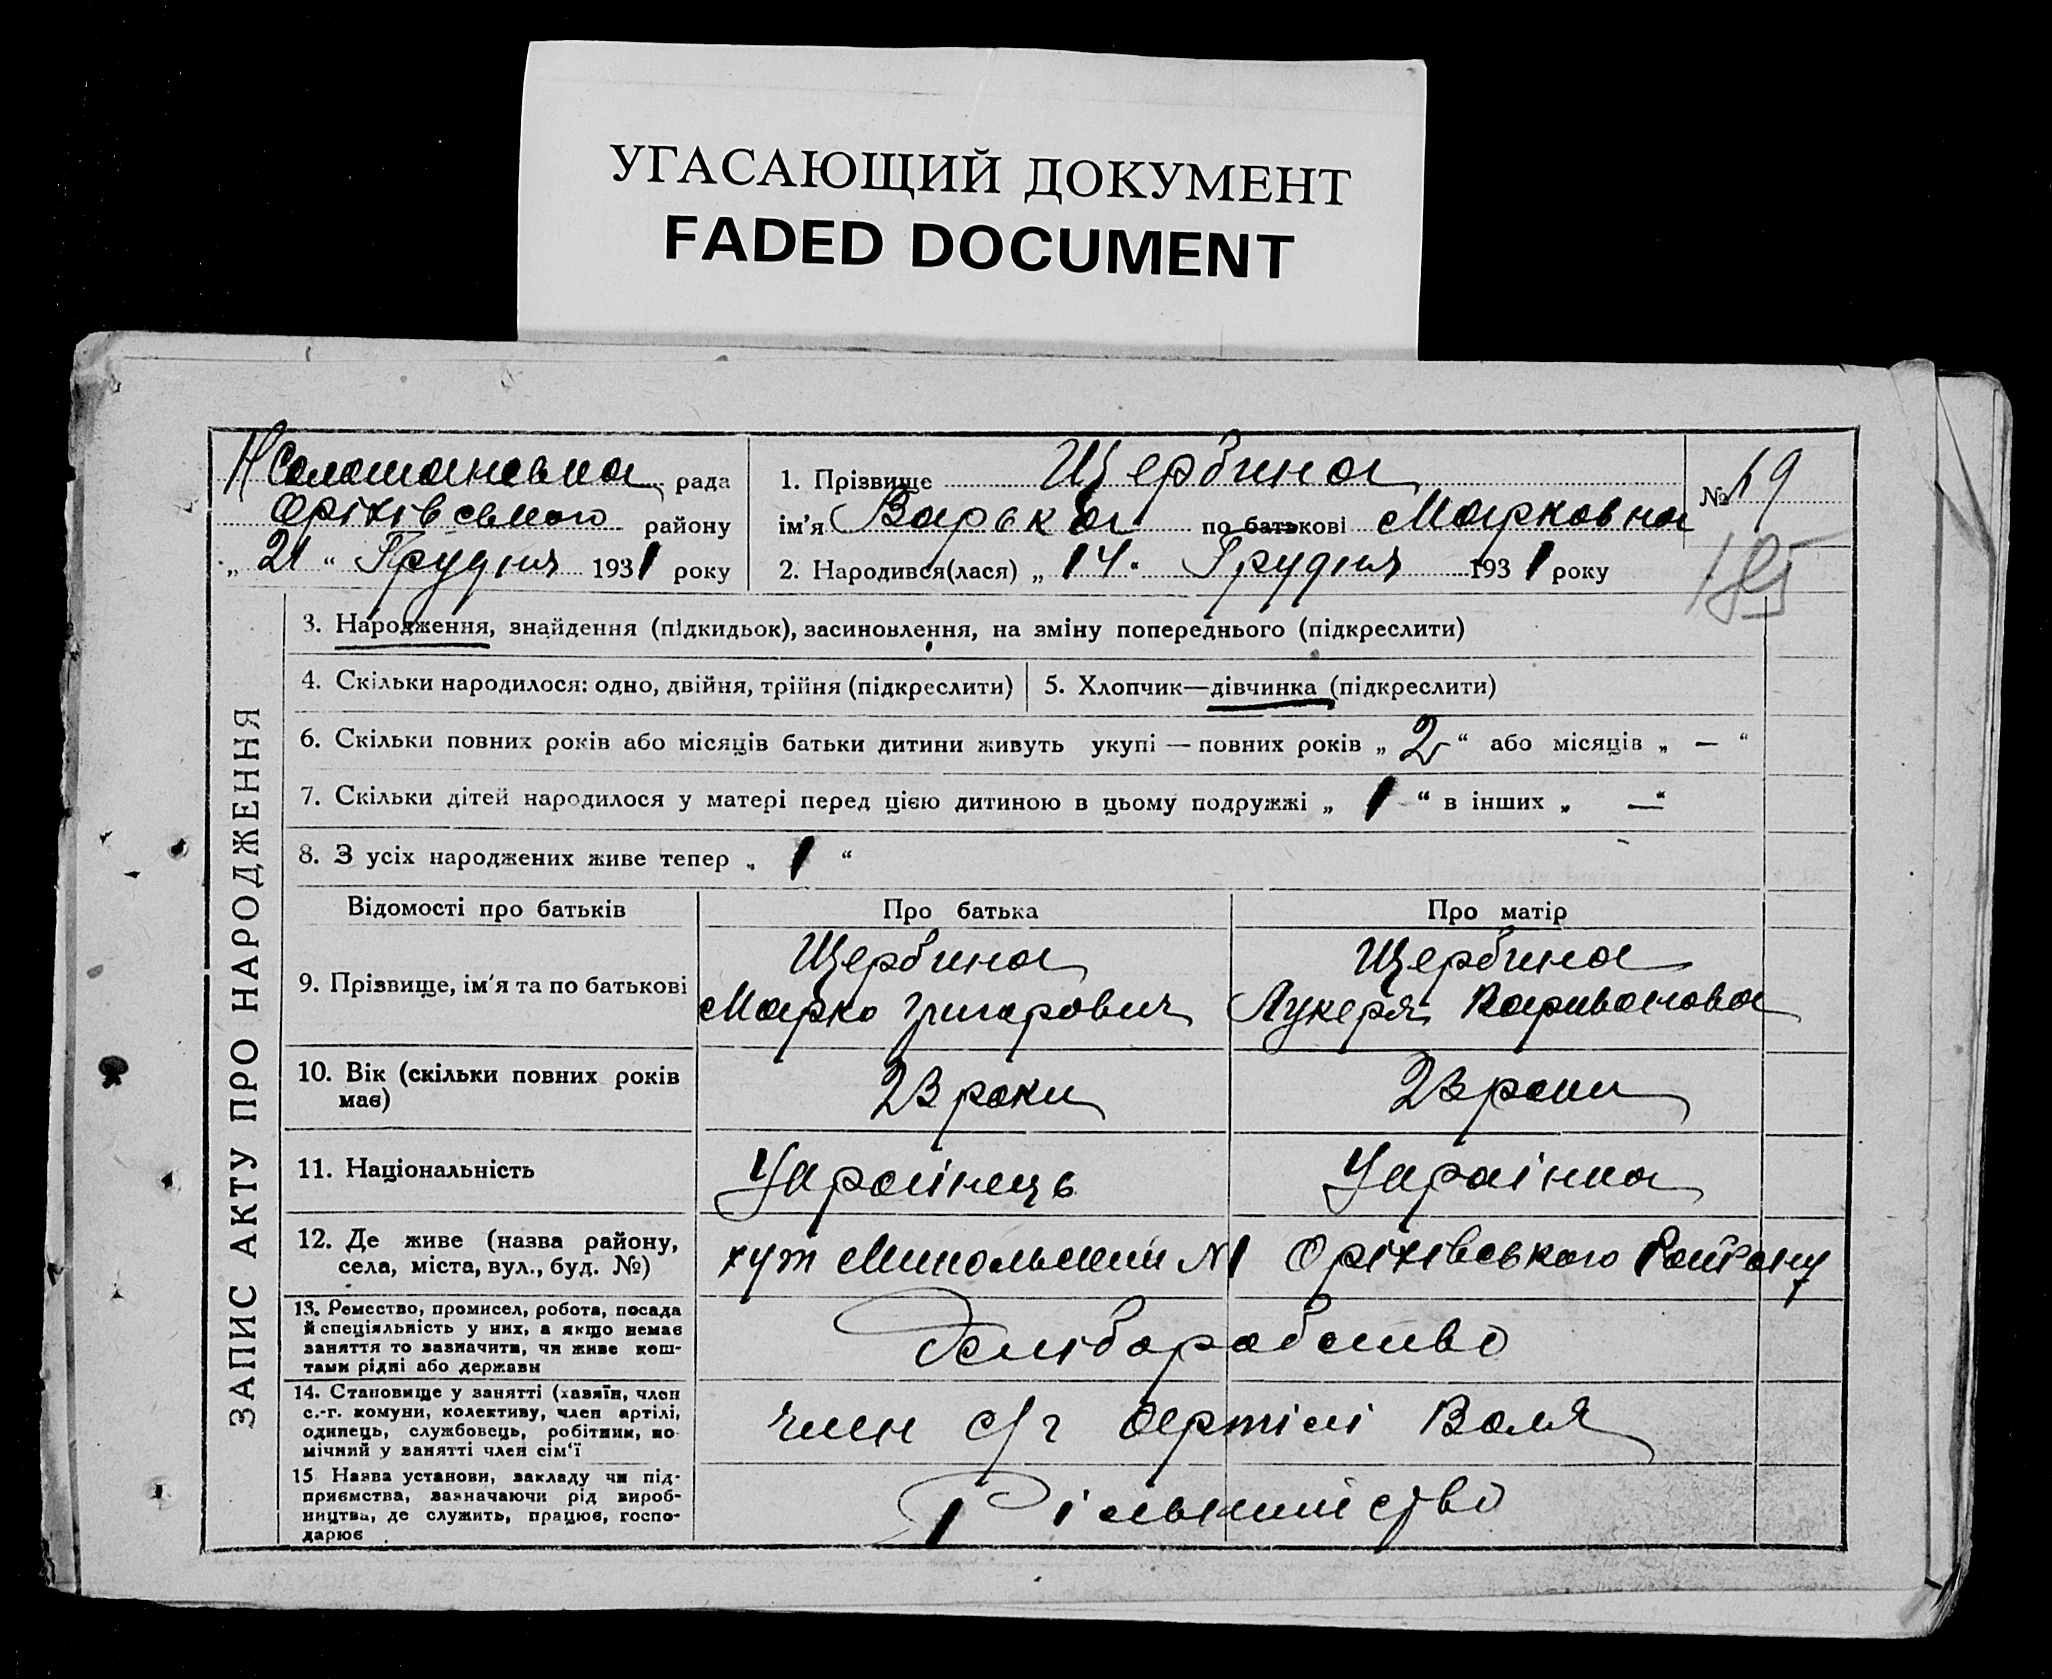 УГАСАЮЩИЙ ДОКУМЕНТ
FADED DOCUMENT
рада
Оріхівського району
„ 21 “ Грудня 1931 року
1. Прізвище Щербина
ім'я Варька по батькові Марковна
2. Народився(лася) „ 14. Грудня 1931 року
№ 19
185
ЗАПИС АКТУ ПРО НАРОДЖЕННЯ
3. Народження, знайдення (підкидьок), засиновлення, на зміну попереднього (підкреслити)
4. Скільки народилося: одно, двійня, трійня (підкреслити)
5. Хлопчик—дівчинка (підкреслити)
6. Скільки повних років або місяців батьки дитини живуть укупі — повних років „ 2 “ або місяців „ — “
7. Скільки дітей народилося у матері перед цією дитиною в цьому подружжі „ 1 “ в інших „ — “
8. З усіх народжених живе тепер „ 1 “
Відомості про батьків
Про батька
Про матір
9. Прізвище, ім'я та по батькові
Щербина
Марко Григорович
Щербина
Лукеря
10. Вік (скільки повних років
має)
23 роки
23 роки
11. Національність
Українець
Українка
12. Де живе (назва району,
села, міста, вул., буд. №)
хут №1 Оріхівського Району
13. Ремество, промисел, робота, посада
й спеціяльність у них, а якщо немає
заняття то зазначити, чи живе кош-
тами рідні або держави
Хліборобство
14. Становище у занятті (хазяїн, член
с.-г. комуни, колективу, член артілі,
одинець, службовець, робітник, по-
мічний у занятті член сім'ї
член с/г артілі Воля
15 Назва установи, закладу чи під-
приємства, зазначаючи рід вироб-
ництва, де служить, працює, госпо-
дарює
Рільництво